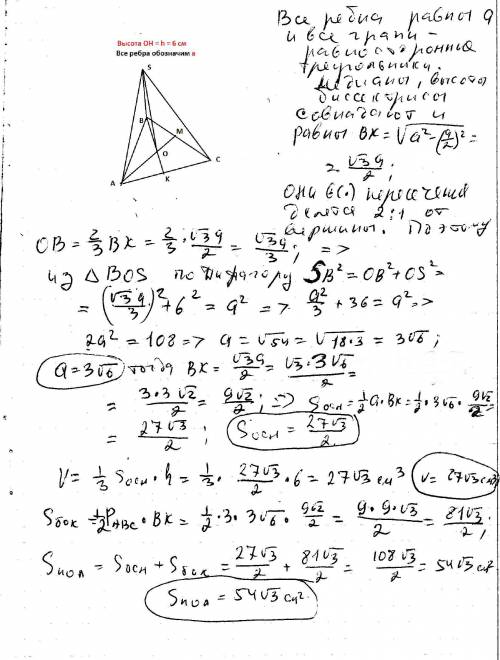 Высота OH = h = 6 см
Все ребра обозначим a
S
B
M
O
A
K
C
Все ребра равны a
и все грани –
равносторонние
треугольники.
Медианы, высоты
биссектрисы
совпадают и
равны BK = √(a² – (a/2)²) =
= √3a/2 ;
Они в (.) пересечения
делятся 2:1 от
вершины. Поэтому
OB = 2/3 BK = 2/3 · √3a/2 = √3a/3 ; =>
из △ BOS по Пифагору SB² = OB² + OS² =
= (√3a/3)² + 6² = a² => a²/3 + 36 = a² =>
2a² = 108 => a = √54 = √18·3 = 3√6 ;
a = 3√6 тогда BK = √3a/2 = √3·3√6/2 =
= 3·3√2/2 = 9√2/2 ; => Sосн = 1/2 a·BK = 1/2 · 3√6 · 9√2/2 =
= 27√3/2 ; Sосн = 27√3/2
V = 1/3 Sосн · h = 1/3 · 27√3/2 · 6 = 27√3 см³ V = 27√3 см³
Sбок = 1/2 PABC · BK = 1/2 · 3 · 3√6 · 9√2/2 = 9·9√3/2 = 81√3/2 ;
Sпол = Sосн + Sбок = 27√3/2 + 81√3/2 = 108√3/2 = 54√3 см²
Sпол = 54√3 см²